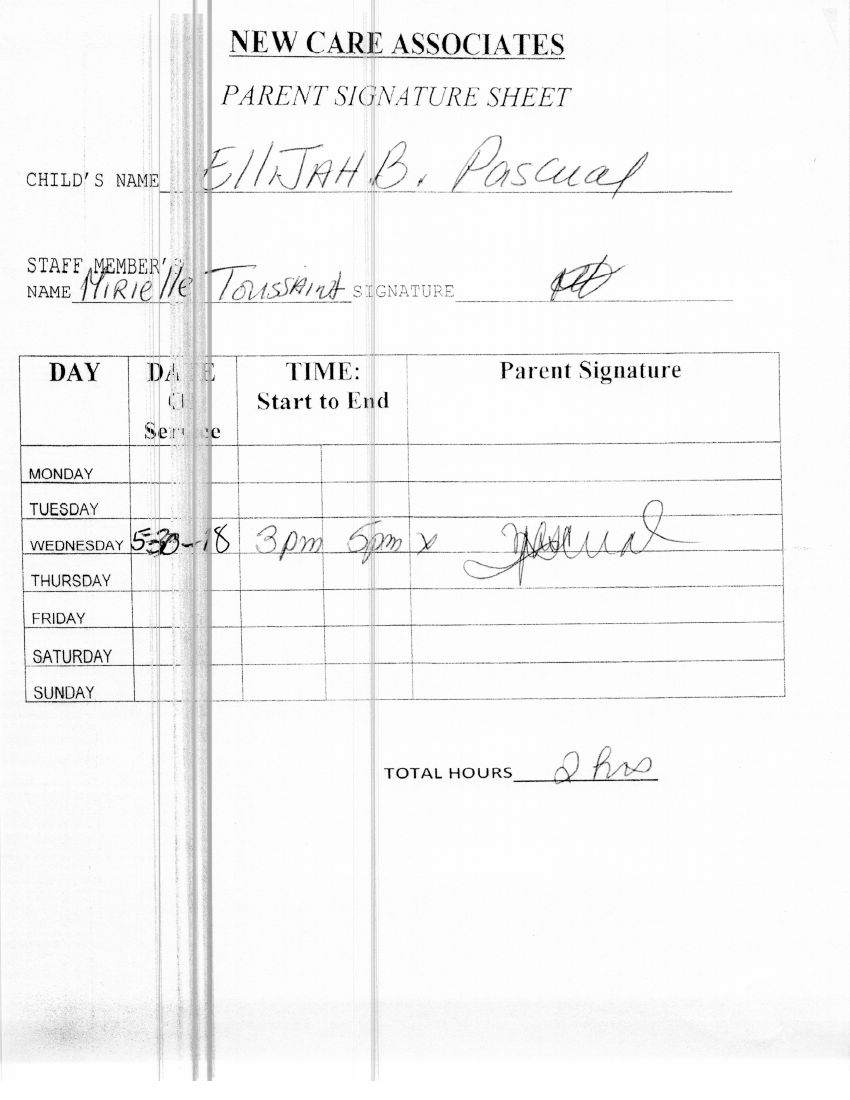 NEW CARE ASSOCIATES
PARENT SIGNATURE SHEET
CHILD'S NAME ElliJAH B. Pascual
STAFF MEMBER'S
NAME Mirielle Toussaint SIGNATURE
DAY DATE TIME: Parent Signature
Of Start to End
Service
MONDAY
TUESDAY
WEDNESDAY 5-30-18 3pm 5pm x Pascual
THURSDAY
FRIDAY
SATURDAY
SUNDAY
TOTAL HOURS 2 hrs